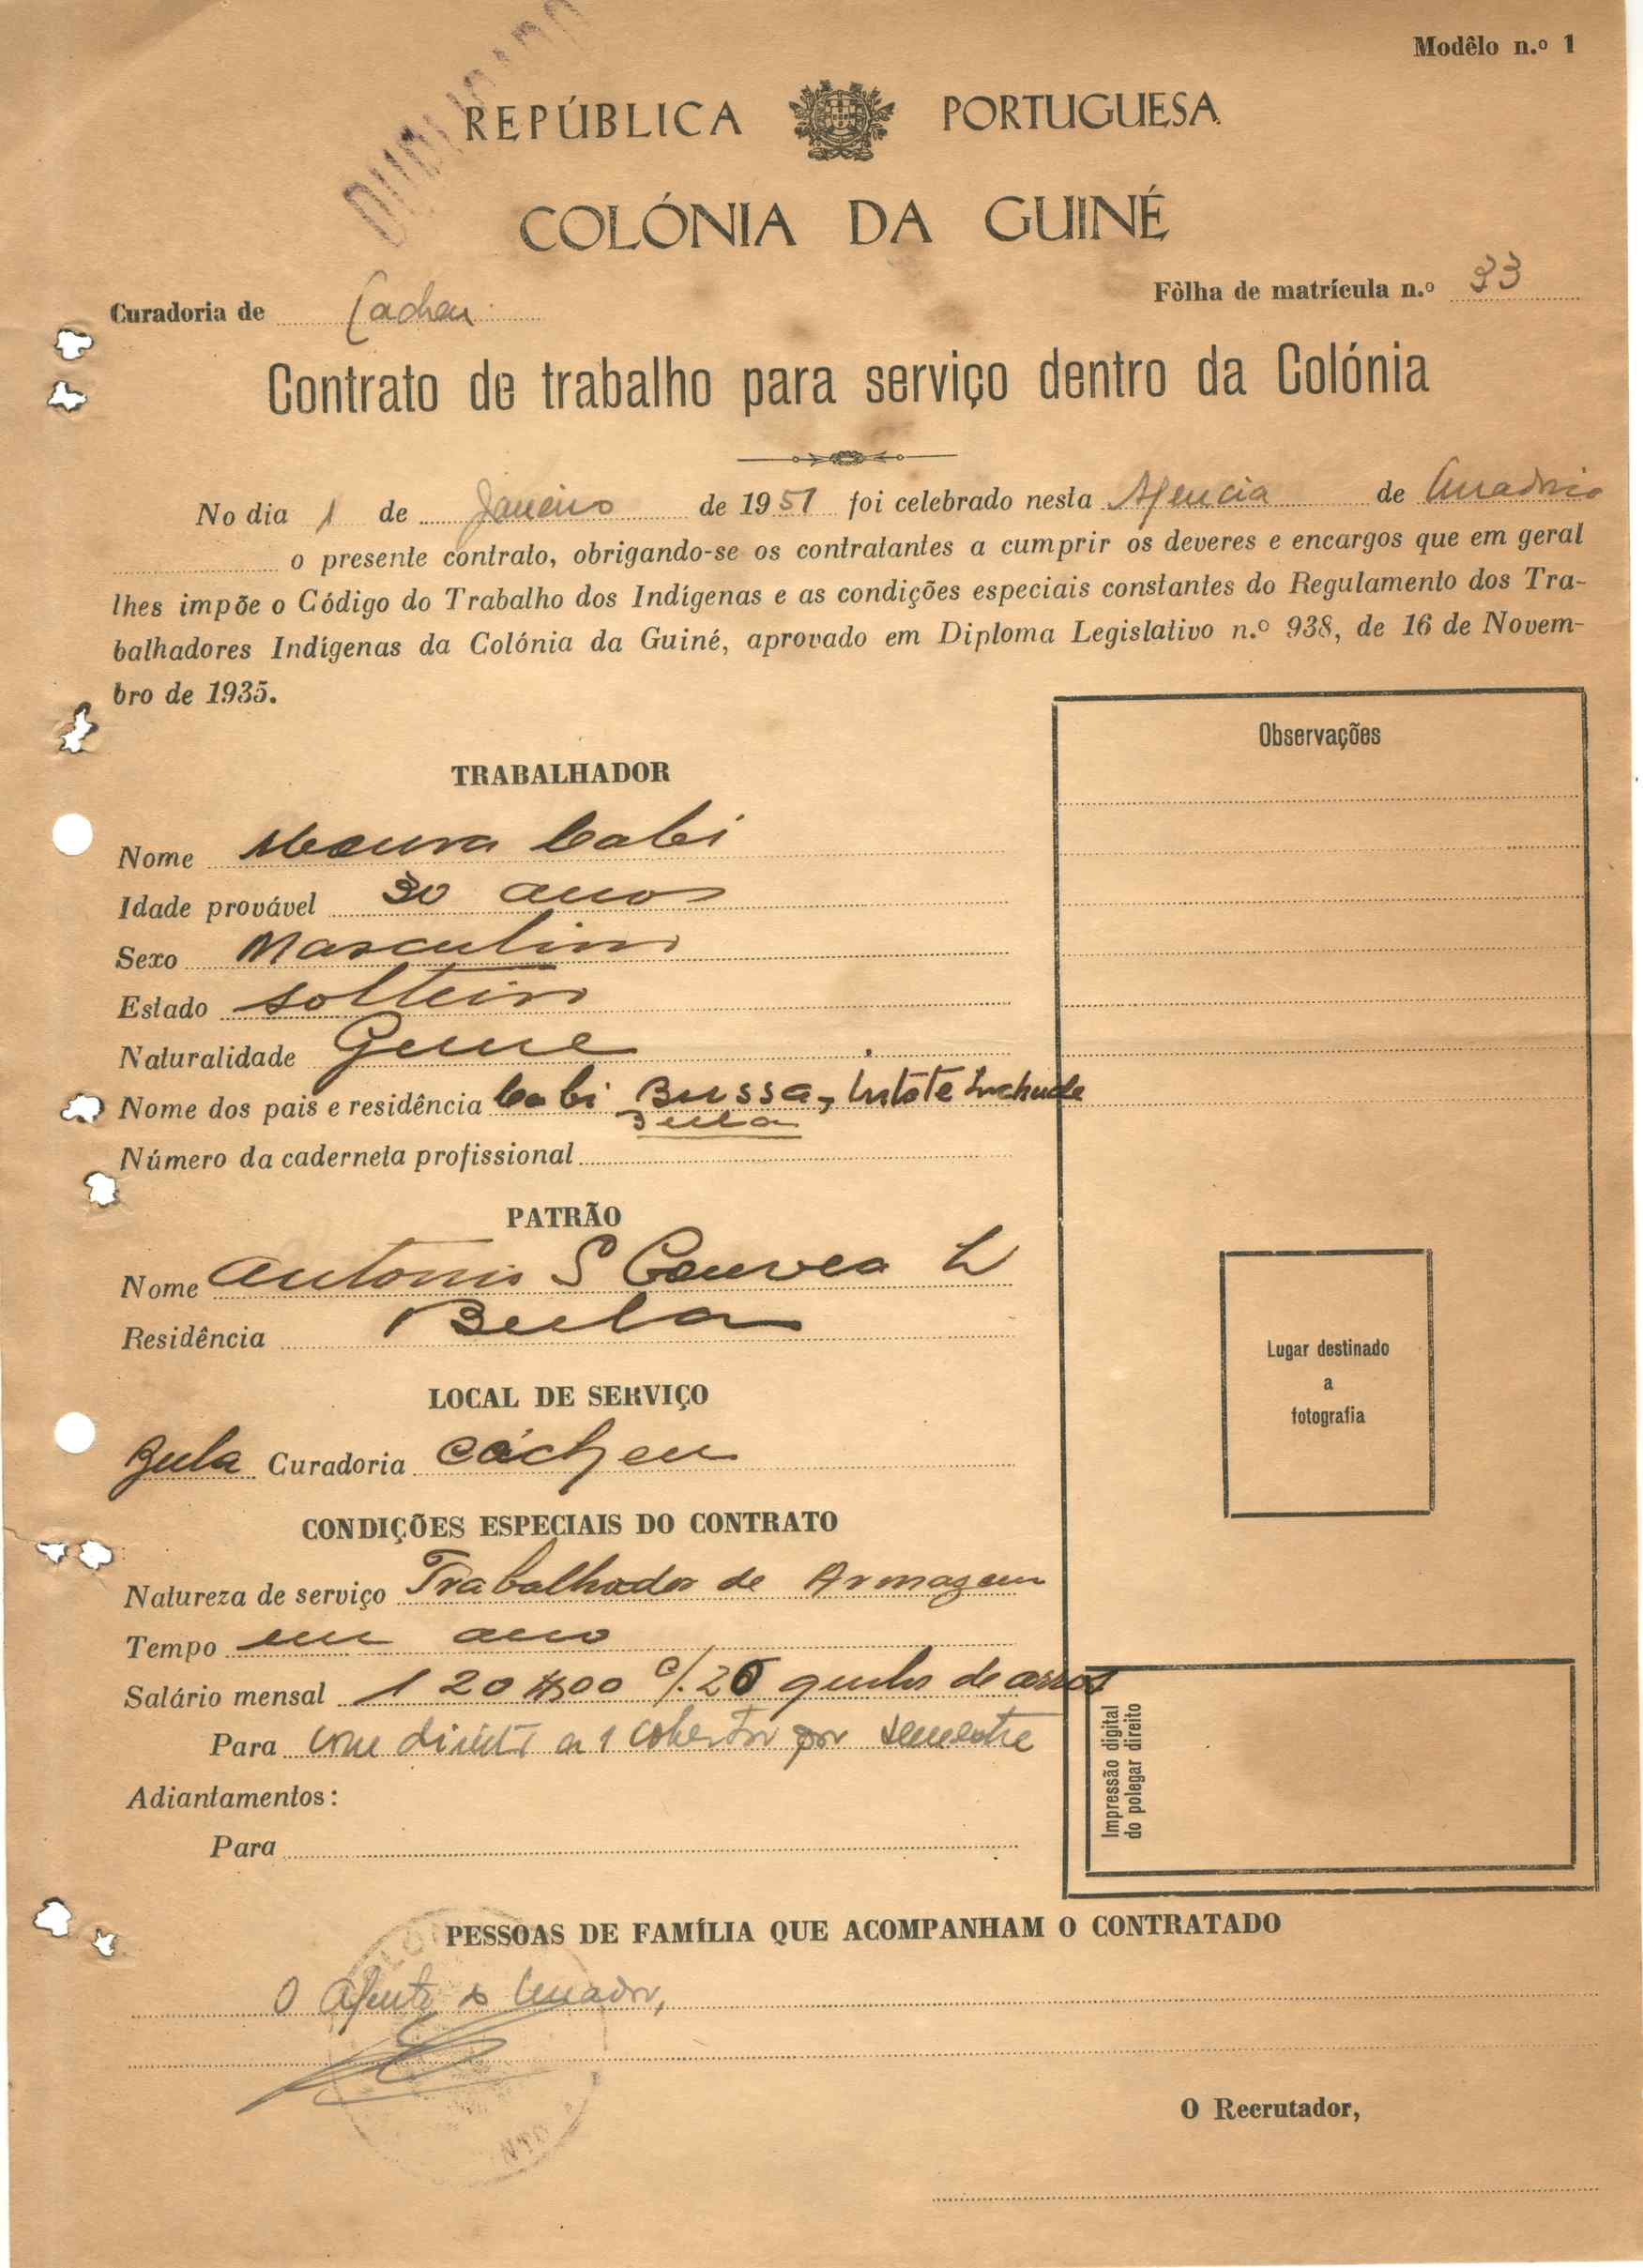 Modêlo n.º 1
DUPLICADO
REPÚBLICA PORTUGUESA
COLÓNIA DA GUINÉ
Curadoria de Cacheu
Fôlha de matrícula n.º 33
Contrato de trabalho para serviço dentro da Colónia
No dia 1 de Janeiro de 1951 foi celebrado nesta Agencia de Curadoria
o presente contrato, obrigando-se os contratantes a cumprir os deveres e encargos que em geral
lhes impõe o Código do Trabalho dos Indígenas e as condições especiais constantes do Regulamento dos Tra-
balhadores Indígenas da Colónia da Guiné, aprovado em Diploma Legislativo n.º 938, de 16 de Novem-
bro de 1935.
Observações
TRABALHADOR
Nome Cabi
Idade provável 30 anos
Sexo Masculino
Estado solteiro
Naturalidade
Nome dos pais e residência Cabi Bussa,
Bula
Número da caderneta profissional
PATRÃO
Nome Antonio S Gouvea L
Residência Bula
Lugar destinado
a
fotografia
LOCAL DE SERVIÇO
Bula Curadoria Cácheu
CONDIÇÕES ESPECIAIS DO CONTRATO
Natureza de serviço Trabalhador de Armazem
Tempo um ano
Salário mensal 120$00 c/. 26 de arros
Para com direito a 1 cobertor por semestre
Adiantamentos:
Para
Impressão digital
do polegar direito
PESSOAS DE FAMÍLIA QUE ACOMPANHAM O CONTRATADO
O Agente do Curador,
O Recrutador,